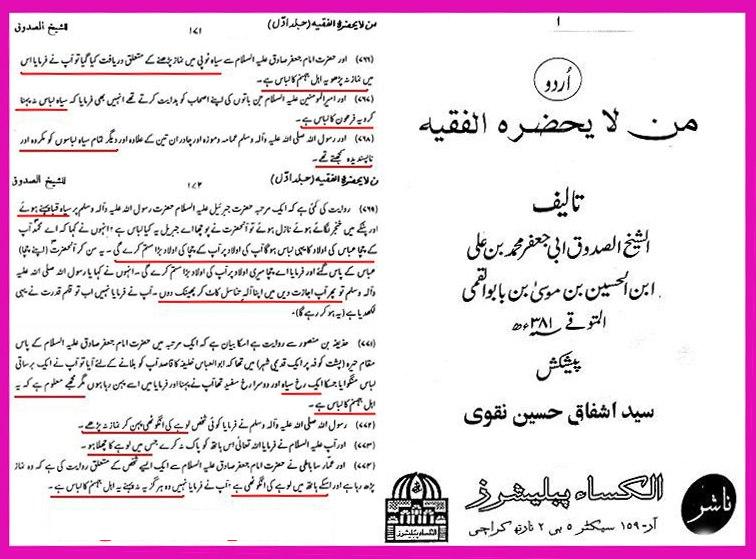 ۱
اُردو
من لا یحضره الفقیه
تالیف
الشیخ الصدوق ابی جعفر محمد بن علی
ابن الحسین بن موسیٰ بن بابویه القمی
المتوفی ۳۸۱ھ
پیشکش
سید اشفاق حسین نقوی
ناشر
الکساء پبلیشرز
آر-۱۵۹ سیکٹر ۵ بی ۲ نارتھ کراچی
من لا یحضرہ الفقیه (جلد اوّل)
۱۷۱
للشیخ الصدوق
(۷۶۶) اور حضرت امام جعفر صادق علیہ السلام سے سیاہ ٹوپی میں نماز پڑھنے کے متعلق دریافت کیا گیا تو آپ نے فرمایا اس
میں نماز نہ پڑھو یہ اہل جہنم کا لباس ہے۔
(۷۶۷) اور امیرالمومنین علیہ السلام جن باتوں کی اپنے اصحاب کو ہدایت کرتے تھے انہیں بھی فرمایا کہ سیاہ لباس نہ پہنا
کرو یہ فرعون کا لباس ہے۔
(۷۶۸) اور رسول اللہ صلی اللہ علیہ وآلہ وسلم عمامہ و موزہ اور چادر ان تین کے علاوہ اور دیگر تمام سیاہ لباسوں کو مکروہ اور
ناپسندیدہ سمجھتے تھے۔
من لا یحضرہ الفقیه (جلد اوّل)
۱۷۲
للشیخ الصدوق
(۷۶۹) روایت کی گئی ہے کہ ایک مرتبہ حضرت جبرئیل علیہ السلام حضرت رسول اللہ صلی اللہ علیہ وآلہ وسلم پر سیاہ قبا پہنے ہوئے
اور پٹکے میں خنجر لگائے ہوئے نازل ہوئے تو آنحضرت نے پوچھا اے جبریل یہ کیا لباس ہے؟ انہوں نے کہا کہ اے محمدؐ آپ
کے چچا عباس کی اولاد کا یہی لباس ہوگا آپ کی اولاد پر آپ کے چچا کی اولاد بڑا ستم کرے گی۔ یہ سن کر آنحضرتؐ (اپنے چچا)
عباس کے پاس گئے اور فرمایا اے چچا میری اولاد پر آپ کی اولاد بڑا ستم کرے گی۔ انہوں نے کہا یا رسول اللہ صلی اللہ علیہ
وآلہ وسلم تو پھر آپ اجازت دیں میں اپنا آلہ تناسل کاٹ کر پھینک دوں۔ آپ نے فرمایا نہیں اب تو قلم قدرت نے یہی
لکھدیا ہے (یہ ہو کر رہے گا)۔
(۷۷۱) حذیفہ بن منصور سے روایت ہے اسکا بیان ہے کہ ایک مرتبہ میں حضرت امام جعفر صادق علیہ السلام کے پاس
مقام حیرہ (پشت کوفہ پر ایک قدیمی شہر) میں تھا کہ ابوالعباس خلیفہ کا قاصد آپ کو بلانے کے لئے آیا تو آپ نے ایک برساتی
لباس منگوایا جسکا ایک رخ سیاہ اور دوسرا رخ سفید تھا آپ نے پہنا اور فرمایا میں اسے پہن رہا ہوں مگر مجھے معلوم ہے کہ یہ
اہل جہنم کا لباس ہے۔
(۷۷۲) رسول اللہ صلی اللہ علیہ وآلہ وسلم نے فرمایا کوئی شخص لوہے کی انگوٹھی پہن کر نماز نہ پڑھے۔
(۷۷۳) اور آپ علیہ السلام نے فرمایا اللہ تعالیٰ اس ہاتھ کو پاک نہ کرے جس میں لوہے کا چھلا ہو۔
(۷۷۴) اور عمار ساباطی نے حضرت امام جعفر صادق علیہ السلام سے ایک ایسے شخص کے متعلق روایت کی ہے کہ وہ نماز
پڑھ رہا ہے اور اسکے ہاتھ میں لوہے کی انگوٹھی ہے۔ آپ نے فرمایا نہیں وہ ہرگز یہ نہ پہنے یہ اہل جہنم کا لباس ہے۔